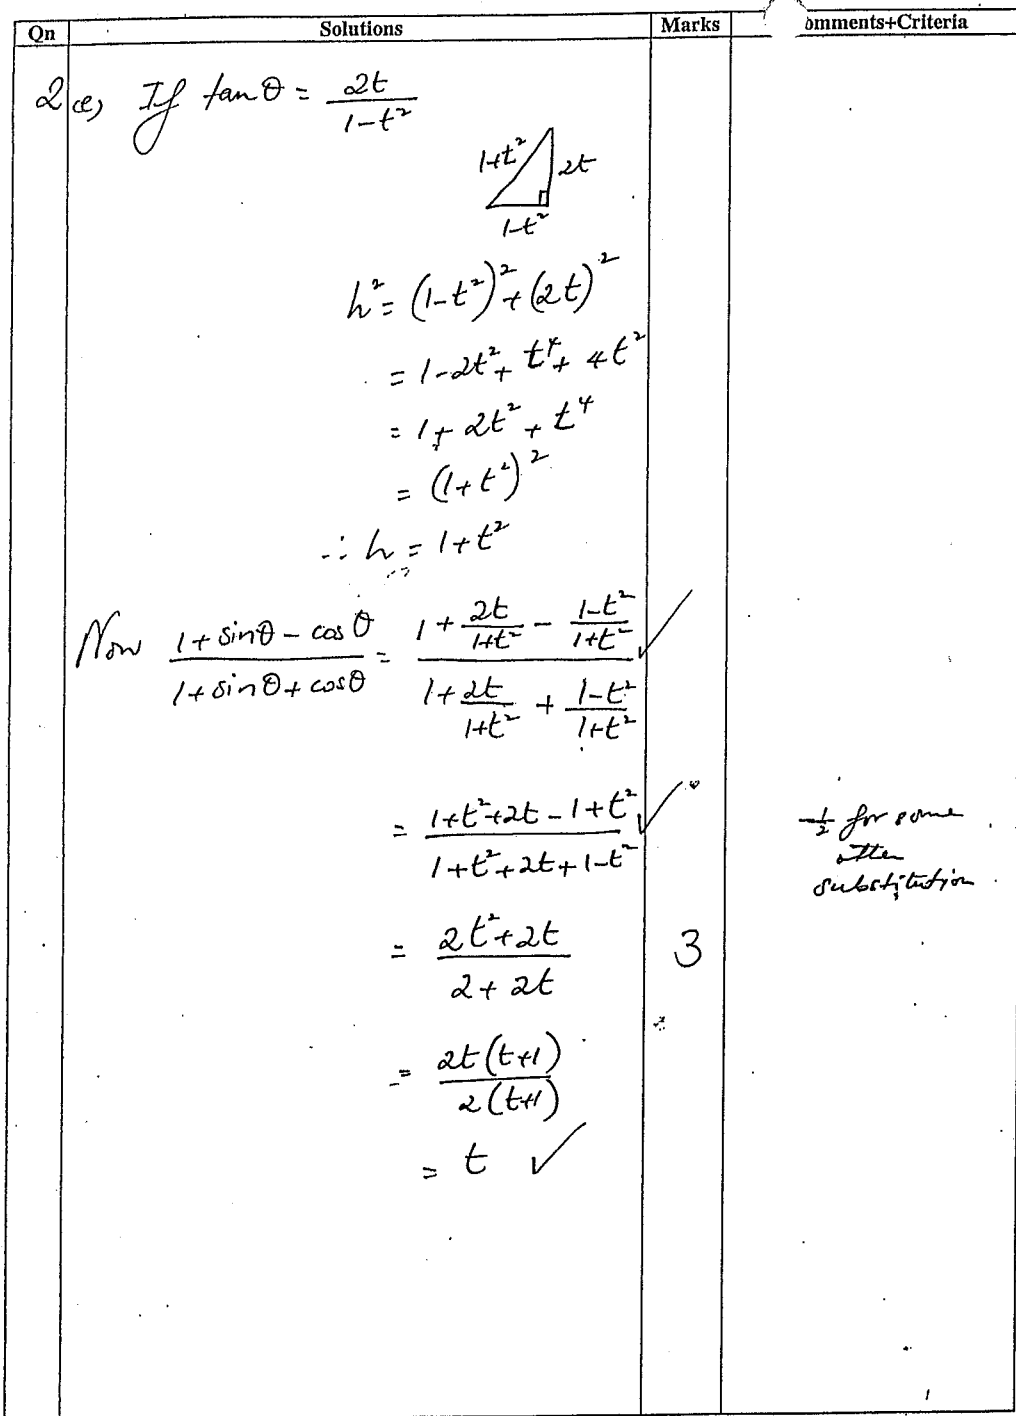 Qn Solutions Marks omments+Criteria
2 (e) If tan θ = 2t / (1-t²)
1+t² 2t
1-t²
h² = (1-t²)² + (2t)²
= 1-2t² + t⁴ + 4t²
= 1 + 2t² + t⁴
= (1+t²)²
∴ h = 1+t²
Now (1 + sinθ - cosθ) / (1 + sinθ + cosθ) = (1 + 2t/(1+t²) - (1-t²)/(1+t²)) / (1 + 2t/(1+t²) + (1-t²)/(1+t²)) ✓
= (1+t²+2t-1+t²) / (1+t²+2t+1-t²) ✓
-½ for some
other
substitution
= (2t²+2t) / (2+2t) 3
= 2t(t+1) / 2(t+1)
= t ✓